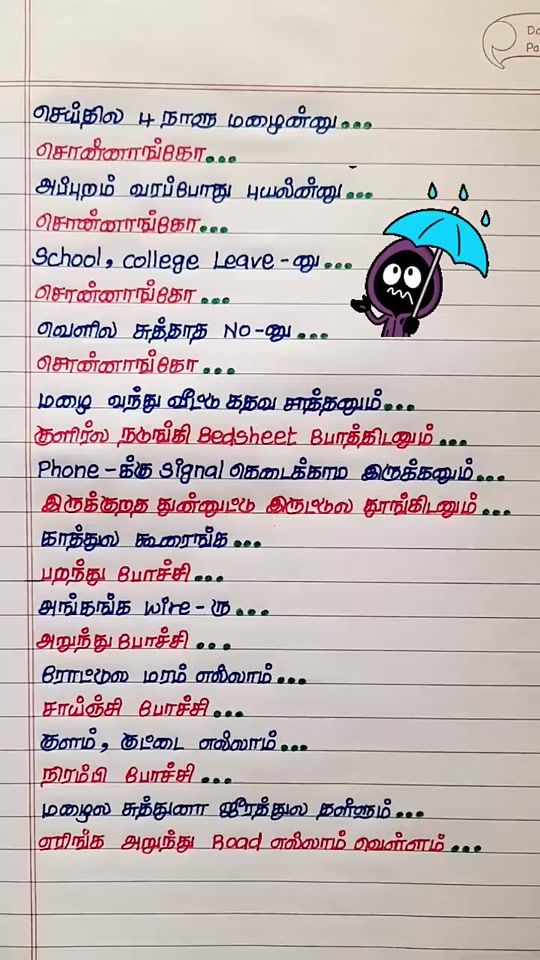 Da
Pa
செய்தில 4 நாளு மழைன்னு...
சொன்னாங்கோ...
அப்புறம் வரப்போது புயலின்னு...
சொன்னாங்கோ...
School, college Leave-னு...
சொன்னாங்கோ...
வெளில சுத்தாத NO-னு...
சொன்னாங்கோ...
மழை வந்து வீட்டு கதவ சாத்தனும்...
குளிர்ல நடுங்கி Bedsheet போத்திடனும்...
Phone-க்கு Signal கெடைக்காம இருக்கனும்...
இருக்குறத துன்னுட்டு இருட்டுல தூங்கிடனும்...
காத்துல கூரைங்க...
பறந்து போச்சி...
அங்கங்க wire-ரு...
அறுந்து போச்சி...
ரோட்டுல மரம் எல்லாம்...
சாய்ஞ்சி போச்சி...
குளம், குட்டை எல்லாம்...
நிரம்பி போச்சி...
மழைல சுத்துனா ஜீரத்துல தள்ளும்...
ஏரிங்க அறுந்து Road எல்லாம் வெள்ளம்...